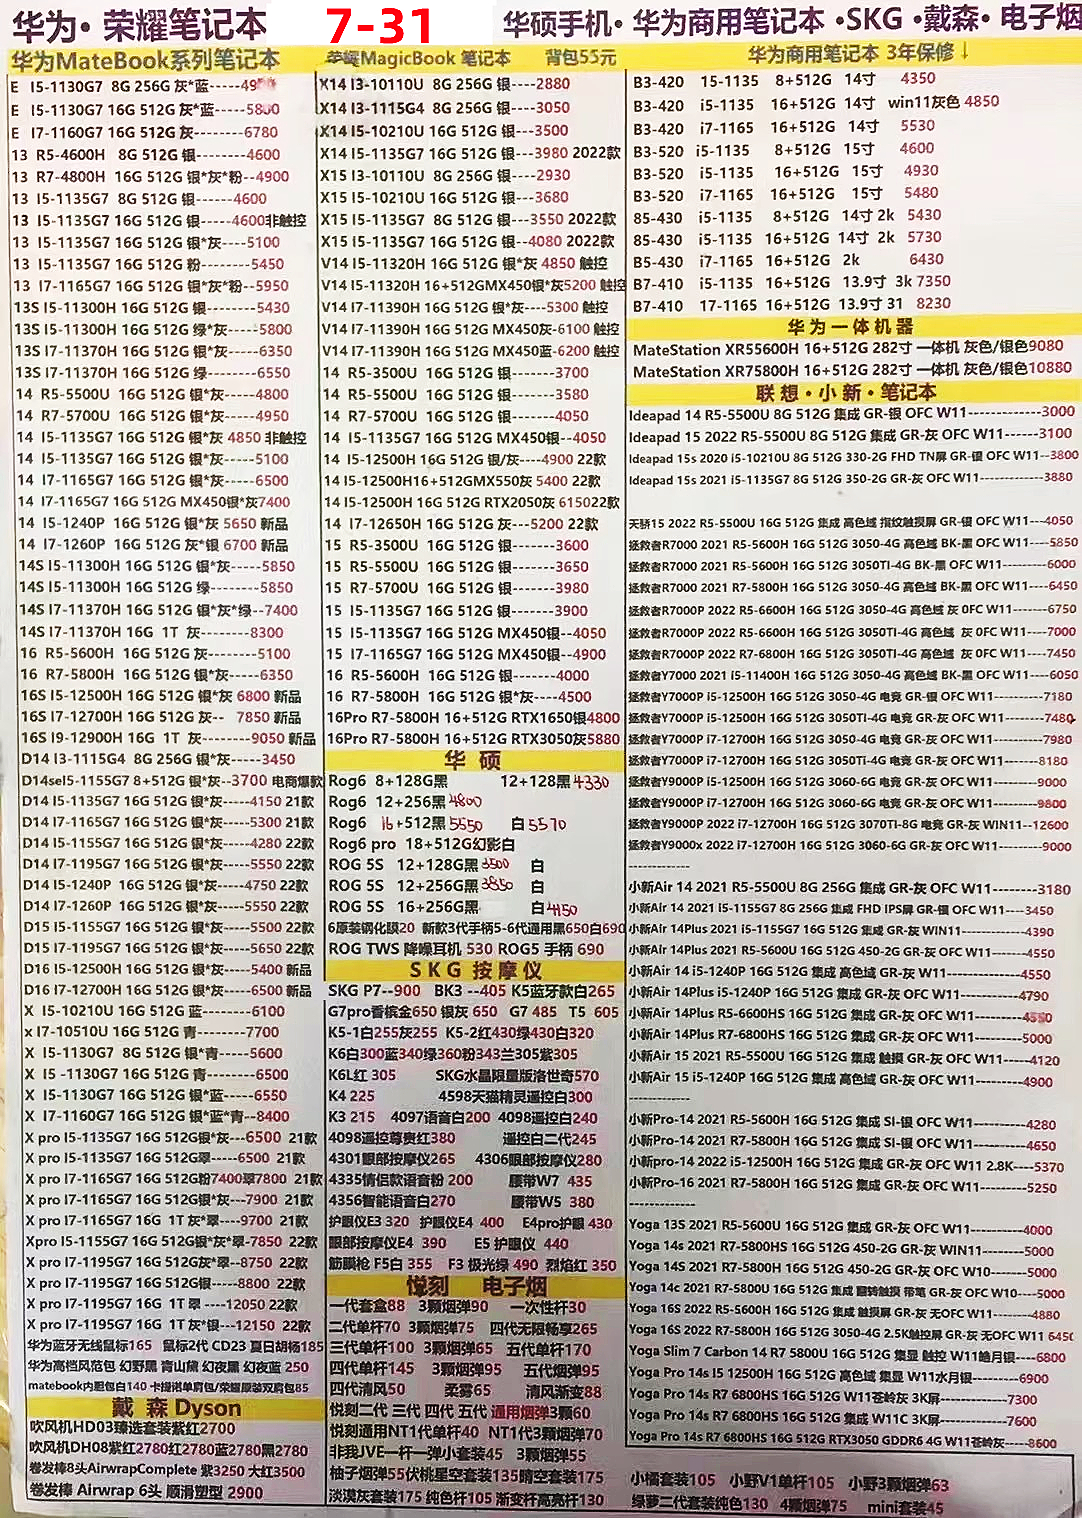 华为· 荣耀笔记本 7-31 华硕手机· 华为商用笔记本 ·SKG ·戴森· 电子烟
华为MateBook系列笔记本
E I5-1130G7 8G 256G 灰*蓝-----
E I5-1130G7 16G 512G 灰*蓝-----5800
E I7-1160G7 16G 512G 灰------6780
13 R5-4600H 8G 512G 银--------4600
13 R7-4800H 16G 512G 银*灰*粉--4900
13 I5-1135G7 8G 512G 银------4600
13 I5-1135G7 16G 512G 银-----4600非触控
13 I5-1135G7 16G 512G 银*灰----5100
13 I5-1135G7 16G 512G 粉--------5450
13 I7-1165G7 16G 512G 银*灰*粉--5950
13S I5-11300H 16G 512G 银------5430
13S I5-11300H 16G 512G 绿*灰----5800
13S I7-11370H 16G 512G 银*灰----6350
13S I7-11370H 16G 512G 绿------6550
14 R5-5500U 16G 512G 银*灰-----4800
14 R7-5700U 16G 512G 银*灰-----4950
14 I5-1135G7 16G 512G 银*灰 4850 非触控
14 I5-1135G7 16G 512G 银*灰-----5100
14 I7-1165G7 16G 512G 银*灰-----6500
14 I7-1165G7 16G 512G MX450银*灰7400
14 I5-1240P 16G 512G 银*灰 5650 新品
14 I7-1260P 16G 512G 灰*银 6700 新品
14S I5-11300H 16G 512G 银*灰----5850
14S I5-11300H 16G 512G 绿------5850
14S I7-11370H 16G 512G 银*灰*绿--7400
14S I7-11370H 16G 1T 灰--------8300
16 R5-5600H 16G 512G 灰--------5100
16 R7-5800H 16G 512G 银*灰-----6350
16S I5-12500H 16G 512G 银*灰 6800 新品
16S I7-12700H 16G 512G 灰-- 7850 新品
16S I9-12900H 16G 1T 灰------9050 新品
D14 I3-1115G4 8G 256G 银*灰----3450
D14seI5-1155G7 8+512G 银*灰--3700 电商爆款
D14 I5-1135G7 16G 512G 银*灰-----4150 21款
D14 I7-1165G7 16G 512G 银*灰-----5300 21款
D14 I5-1155G7 16G 512G 银*灰-----4280 22款
D14 I7-1195G7 16G 512G 银*灰-----5550 22款
D14 I5-1240P 16G 512G 银*灰-----4750 22款
D14 I7-1260P 16G 512G 银*灰-----5550 22款
D15 I5-1155G7 16G 512G 银*灰-----5500 22款
D15 I7-1195G7 16G 512G 银*灰-----5650 22款
D16 I5-12500H 16G 512G 银*灰----5400 新品
D16 I7-12700H 16G 512G 银*灰----6500 新品
X I5-10210U 16G 512G 蓝---------6100
x I7-10510U 16G 512G 青--------7700
X I5-1130G7 8G 512G 银*青-----5600
X I5 -1130G7 16G 512G 青--------6500
X I5-1130G7 16G 512G 银*蓝-----6550
X I7-1160G7 16G 512G 银*蓝*青--8400
X pro I5-1135G7 16G 512G银*灰---6500 21款
X pro I5-1135G7 16G 512G翠-----6500 21款
X pro I7-1165G7 16G 512G粉7400翠7800 21款
X pro I7-1165G7 16G 512G银*灰---7900 21款
X pro I7-1165G7 16G 1T 灰*翠----9700 21款
Xpro I5-1155G7 16G 512G银*灰*翠-7850 22款
X pro I7-1195G7 16G 512G灰*翠--8750 22款
X pro I7-1195G7 16G 512G银-----8800 22款
X pro I7-1195G7 16G 1T 翠 ----12050 22款
X pro I7-1195G7 16G 1T 灰*银---12150 22款
华为蓝牙无线鼠标165 鼠标2代 CD23 夏日胡杨185
华为高档风范包 幻野黑 青山黛 幻夜黑 幻夜蓝 250
matebook内胆包白140 卡提诺单肩包/荣耀原装双肩包85
戴 森 Dyson
吹风机HD03臻选套装紫红2700
吹风机DH08紫红2780红2780蓝2780黑2780
卷发棒8头AirwrapComplete 紫3250 大红3500
卷发棒 Airwrap 6头 顺滑塑型 2900
荣耀MagicBook 笔记本 背包55元
X14 I3-10110U 8G 256G 银----2880
X14 I3-1115G4 8G 256G 银----3050
X14 I5-10210U 16G 512G 银---3500
X14 I5-1135G7 16G 512G 银---3980 2022款
X15 I3-10110U 8G 256G 银----2930
X15 I5-10210U 16G 512G 银---3680
X15 I5-1135G7 8G 512G 银---3550 2022款
X15 I5-1135G7 16G 512G 银--4080 2022款
V14 I5-11320H 16G 512G 银*灰 4850 触控
V14 I5-11320H 16+512GMX450银*灰5200 触控
V14 I7-11390H 16G 512G 银*灰----5300 触控
V14 I7-11390H 16G 512G MX450灰-6100 触控
V14 I7-11390H 16G 512G MX450蓝-6200 触控
14 R5-3500U 16G 512G 银-------3700
14 R5-5500U 16G 512G 银-------3580
14 R7-5700U 16G 512G 银-------4050
14 I5-1135G7 16G 512G MX450银--4050
14 I5-12500H 16G 512G 银/灰----4900 22款
14 I5-12500H16+512GMX550灰 5400 22款
14 I5-12500H 16G 512G RTX2050灰 615022款
14 I7-12650H 16G 512G 灰---5200 22款
15 R5-3500U 16G 512G 银-------3600
15 R5-5500U 16G 512G 银-------3650
15 R7-5700U 16G 512G 银-------3980
15 I5-1135G7 16G 512G 银------3900
15 I5-1135G7 16G 512G MX450银--4050
15 I7-1165G7 16G 512G MX450银--4900
16 R5-5600H 16G 512G 银------4000
16 R7-5800H 16G 512G 银*灰----4500
16Pro R7-5800H 16+512G RTX1650银4800
16Pro R7-5800H 16+512G RTX3050灰5880
华 硕
Rog6 8+128G黑 12+128黑 4330
Rog6 12+256黑 4800
Rog6 16+512黑 5550 白 5570
Rog6 pro 18+512G幻影白
ROG 5S 12+128G黑 3500 白
ROG 5S 12+256G黑 3850 白
ROG 5S 16+256G黑 白 4150
6原装钢化膜20 新款3代手柄5-6代通用黑650白690
ROG TWS 降噪耳机 530 ROG5 手柄 690
SKG 按摩仪
SKG P7--900 BK3 --405 K5蓝牙款白265
G7pro香槟金650 银灰 650 G7 485 T5 605
K5-1白255灰255 K5-2红430绿430白320
K6白300蓝340绿360粉343兰305紫305
K6L红 305 SKG水晶限量版洛世奇570
K4 225 4598天猫精灵遥控白300
K3 215 4097语音白200 4098遥控白240
4098遥控尊贵红380 遥控白二代245
4301眼部按摩仪265 4306眼部按摩仪280
4335情侣款语音粉 200 腰带W7 435
4356智能语音白270 腰带W5 380
护眼仪E3 320 护眼仪E4 400 E4pro护眼 430
眼部按摩仪E4 390 E5 护眼仪 440
筋膜枪 F5白 355 F3 极光绿 490 烈焰红 350
悦刻 电子烟
一代套盒88 3颗烟弹90 一次性杆30
二代单杆70 3颗烟弹75 四代无限畅享265
三代单杆100 3颗烟弹65 五代单杆170
四代单杆145 3颗烟弹95 五代烟弹95
四代清风50 柔雾65 清风渐变88
悦刻二代 三代 四代 五代 通用烟弹3颗60
悦刻通用NT1代单杆40 NT1代3颗烟弹70
非我JVE一杆一弹小套装45 3颗烟弹55
柚子烟弹55伏桃星空套装135晴空套装175
淡漠灰套装175 纯色杆105 渐变杆高亮杆130
华为商用笔记本 3年保修↓
B3-420 15-1135 8+512G 14寸 4350
B3-420 i5-1135 16+512G 14寸 win11灰色 4850
B3-420 i7-1165 16+512G 14寸 5530
B3-520 i5-1135 8+512G 15寸 4600
B3-520 i5-1135 16+512G 15寸 4930
B3-520 i7-1165 16+512G 15寸 5480
85-430 i5-1135 8+512G 14寸 2k 5430
85-430 i5-1135 16+512G 14寸 2k 5730
B5-430 i7-1165 16+512G 2k 6430
B7-410 i5-1135 16+512G 13.9寸 3k 7350
B7-410 17-1165 16+512G 13.9寸 31 8230
华为一体机器
MateStation XR55600H 16+512G 282寸 一体机 灰色/银色9080
MateStation XR75800H 16+512G 282寸 一体机 灰色/银色10880
联想·小新·笔记本
Ideapad 14 R5-5500U 8G 512G 集成 GR-银 OFC W11-----------3000
Ideapad 15 2022 R5-5500U 8G 512G 集成 GR-灰 OFC W11------3100
Ideapad 15s 2020 i5-10210U 8G 512G 330-2G FHD TN屏 GR-银 OFC W11--3800
Ideapad 15s 2021 i5-1135G7 8G 512G 350-2G GR-灰 OFC W11-----------3880
天骄15 2022 R5-5500U 16G 512G 集成 高色域 指纹触摸屏 GR-银 OFC W11---4050
拯救者R7000 2021 R5-5600H 16G 512G 3050-4G 高色域 BK-黑 OFC W11---5850
拯救者R7000 2021 R5-5600H 16G 512G 3050TI-4G BK-黑 OFC W11-------6000
拯救者R7000 2021 R7-5800H 16G 512G 3050-4G 高色域 BK-黑 OFC W11---6450
拯救者R7000P 2022 R5-6600H 16G 512G 3050-4G 高色域 灰 0FC W11-----6750
拯救者R7000P 2022 R5-6600H 16G 512G 3050TI-4G 高色域 灰 0FC W11---7000
拯救者R7000P 2022 R7-6800H 16G 512G 3050TI-4G 高色域 灰 OFC W11---7450
拯救者Y7000 2021 i5-11400H 16G 512G 3050-4G 高色域 BK-黑 OFC W11---6050
拯救者Y7000P i5-12500H 16G 512G 3050-4G 电竞 GR-银 OFC W11---------7180
拯救者Y7000P i5-12500H 16G 512G 3050TI-4G 电竞 GR-灰 OFC W11-------7480
拯救者Y7000P i7-12700H 16G 512G 3050-4G 电竞 GR-灰 OFC W11--------7980
拯救者Y7000P i7-12700H 16G 512G 3050Ti-4G 电竞 GR-灰 OFC W11------8180
拯救者Y9000P i5-12500H 16G 512G 3060-6G 电竞 GR-灰 OFC W11--------9000
拯救者Y9000P i7-12700H 16G 512G 3060-6G 电竞 GR-灰 OFC W11--------9800
拯救者Y9000P 2022 i7-12700H 16G 512G 3070TI-8G 电竞 GR-灰 WIN11--12600
拯救者Y9000x 2022 i7-12700H 16G 512G 3060-6G GR-灰 OFC W11--------9000
------------
小新Air 14 2021 R5-5500U 8G 256G 集成 GR-灰 OFC W11----------3180
小新Air 14 2021 i5-1155G7 8G 256G 集成 FHD IPS屏 GR-银 OFC W11----3450
小新Air 14Plus 2021 i5-1155G7 16G 512G 集成 GR-灰 WIN11----------4390
小新Air 14Plus 2021 R5-5600U 16G 512G 450-2G GR-灰 OFC W11------4550
小新Air 14 i5-1240P 16G 512G 集成 高色域 GR-灰 W11-----------4550
小新Air 14Plus i5-1240P 16G 512G 集成 GR-灰 OFC W11----------4790
小新Air 14Plus R5-6600HS 16G 512G 集成 GR-灰 OFC W11--------
小新Air 14Plus R7-6800HS 16G 512G 集成 GR-灰 OFC W11--------5000
小新Air 15 2021 R5-5500U 16G 512G 集成 触摸 GR-灰 OFC W11----4120
小新Air 15 i5-1240P 16G 512G 集成 高色域 GR-灰 OFC W11-------4900
------------
小新Pro-14 2021 R5-5600H 16G 512G 集成 SI-银 OFC W11--------4280
小新Pro-14 2021 R7-5800H 16G 512G 集成 SI-银 OFC W11--------4650
小新pro-14 2022 i5-12500H 16G 512G 集成 GR-灰 OFC W11 2.8K----5370
小新Pro-16 2021 R7-5800H 16G 512G 集成 GR-灰 OFC W11--------5250
------------
Yoga 13S 2021 R5-5600U 16G 512G 集成 GR-灰 OFC W11--------4000
Yoga 14s 2021 R7-5800HS 16G 512G 450-2G GR-灰 WIN11------5000
Yoga 14S 2021 R7-5800HS 16G 512G 450-2G GR-灰 OFC W10-----5000
Yoga 14c 2021 R7-5800U 16G 512G 集成 翻转触摸 带笔 GR-灰 OFC W10--5000
Yoga 16S 2022 R5-5600H 16G 512G 集成 触摸屏 GR-灰 无OFC W11------4880
Yoga 16S 2022 R7-5800H 16G 512G 3050-4G 2.5K触控屏 GR-灰 无OFC W11 6450
Yoga Slim 7 Carbon 14 R7 5800U 16G 512G 集显 触控 W11皓月银----6800
Yoga Pro 14s I5 12500H 16G 512G 集显 W11水月银-------6900
Yoga Pro 14s R7 6800HS 16G 512G W11苍岭灰 3K屏------7300
Yoga Pro 14s R7 6800HS 16G 512G 集成 W11C 3K屏------7600
Yoga Pro 14s R7 6800HS 16G 512G RTX3050 GDDR6 4G W11苍岭灰---8600
小橘套装105 小野V1单杆105 小野3颗烟弹63
绿萝二代套装纯色130 4颗烟弹75 mini套装45